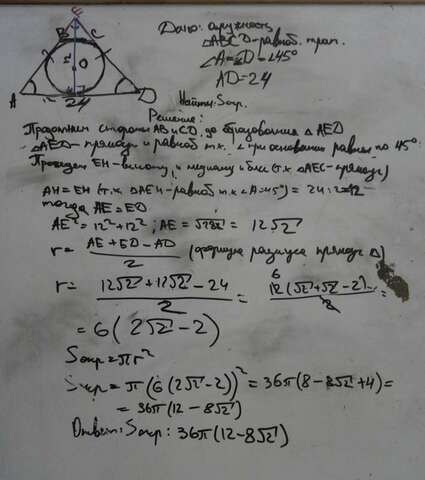 E
B C
O
A D
24
Дано: окружность
ABCD-равноб. трап.
∠A=∠D=45°
AD=24
Найти: Sокр.
Решение:
Продолжим стороны AB и CD до образования △ AED
△AED- прямоуг и равноб т.к. ∠ при основании равны по 45°.
Проведем EH-высоту, и медиану и бис (т.к. △AEC-прямоуг)
AH=EH (т.к. △AEH-равноб т.к ∠A=45°) = 24:2=12
тогда AE=ED
AE²=12²+12²; AE=√288 = 12√2
r= AE+ED-AD / 2 (формула радиуса прямоуг △)
r= 12√2+12√2-24 / 2 = 6 12(√2+√2-2) / 2 =
=6(2√2-2)
Sокр=πr²
Sокр=π(6(2√2-2))²=36π(8-8√2+4)=
=36π(12-8√2)
Ответ: Sокр: 36π(12-8√2)